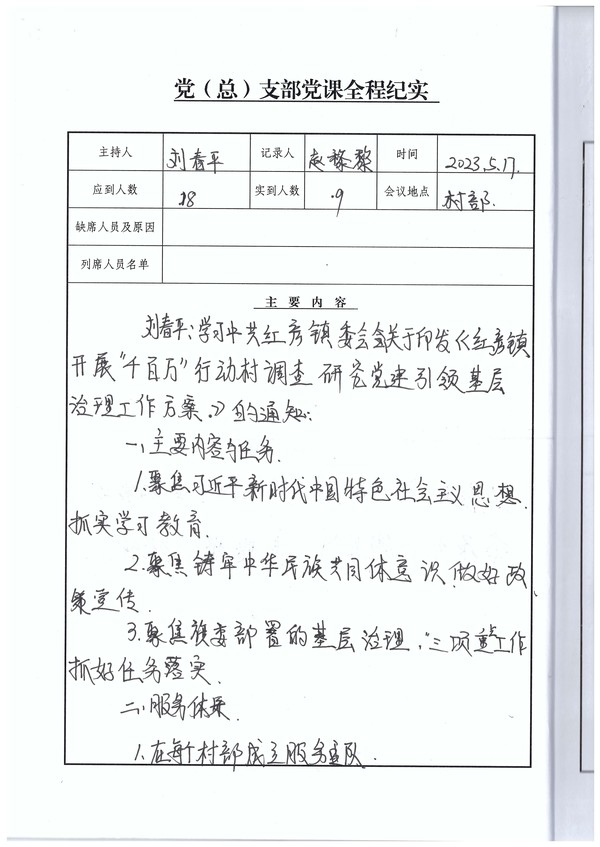 党（总）支部党课全程纪实
主持人 刘春平 记录人 赵黎黎 时间 2023.5.17.
应到人数 18 实到人数 9 会议地点 村部.
缺席人员及原因
列席人员名单
主要内容
刘春平:学习中共红彦镇委会关于印发《红彦镇
开展“千百万”行动村调查研究党建引领基层
治理工作方案.》的通知:
一、主要内容与任务.
1.聚焦习近平新时代中国特色社会主义思想.
抓实学习教育.
2.聚焦铸牢中华民族共同体意识,做好政
策宣传.
3.聚焦旗委部署的基层治理,“三项重点工作
抓好任务落实.
二、服务体系.
1.在每个村部成立服务队.